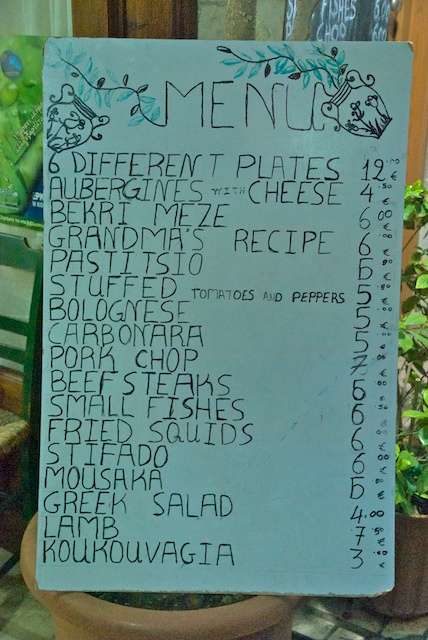 FISHES
CHOP
MENU
6 DIFFERENT PLATES 12 €
AUBERGINES WITH CHEESE 4.50 €
BEKRI MEZE 6.00 €
GRANDMA'S RECIPE 6 €
PASTITSIO 5 €
STUFFED TOMATOES AND PEPPERS 5 €
BOLOGNESE 5 €
CARBONARA 5 €
PORK CHOP 7 €
BEEFSTEAKS 6 €
SMALL FISHES 6 €
FRIED SQUIDS 6 €
STIFADO 6 €
MOUSAKA 5 €
GREEK SALAD 4.00 €
LAMB 7 €
KOUKOUVAGIA 3 €